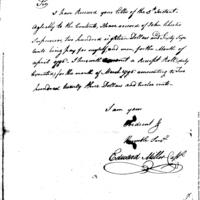 Sir
I have Received your letter of the 3d Instant
Agreeable to the Contents, I have received of John Charles
two hundred & eighteen Dollars and sixty six
cents being pay for myself and men for the Month of
April 1796. I herewith a Receipt Roll duly
executed for the month of March 1796 amounting to two
hundred twenty three Dollars and twelve cents
I am your
Obedient &
Humble Servt
Edward Miller Capt.